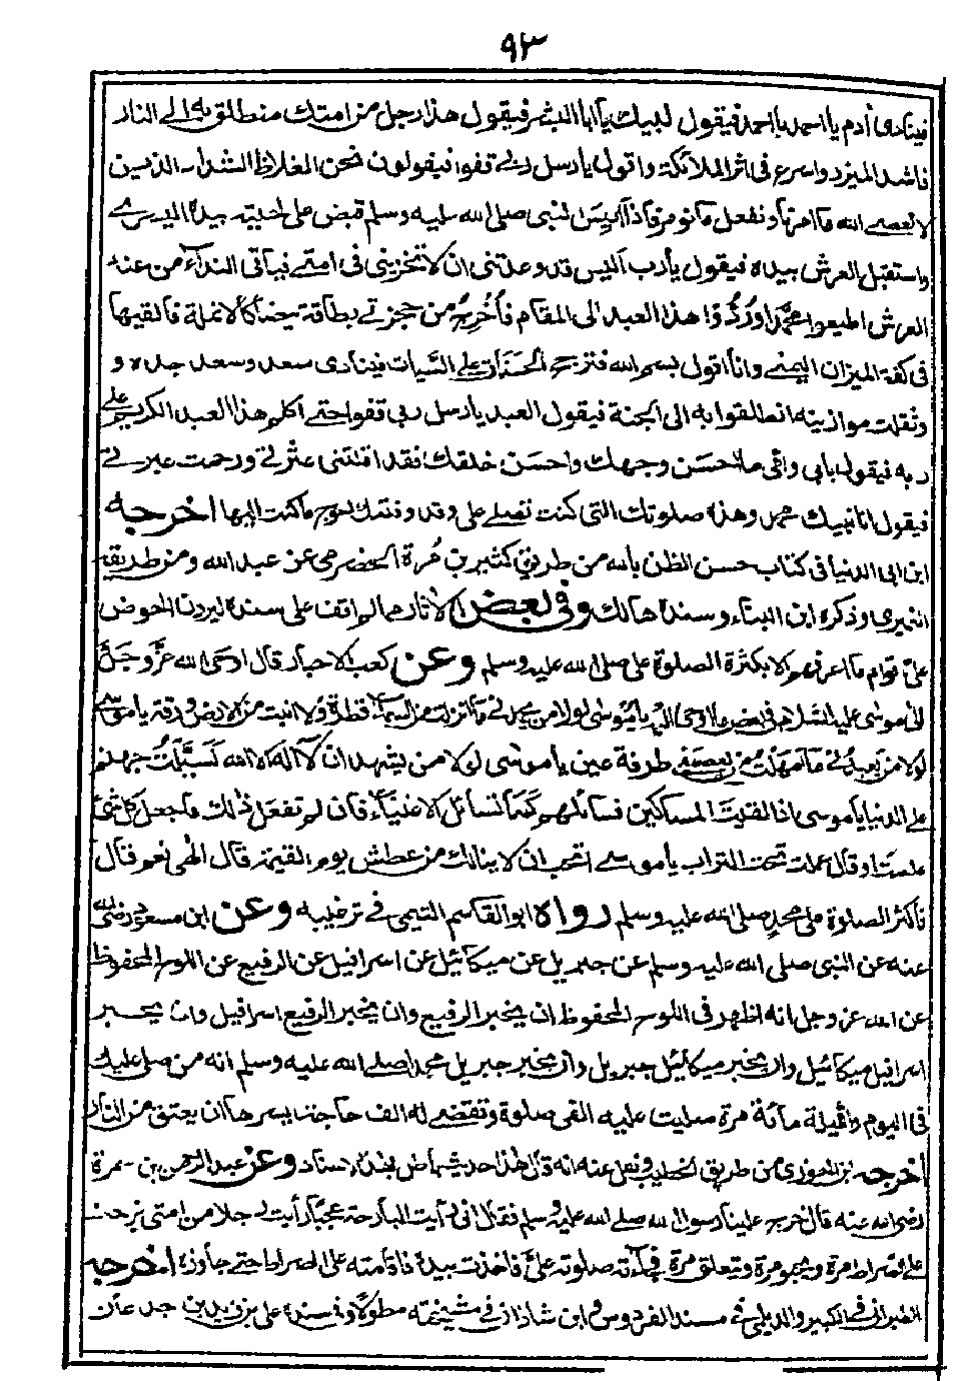 ٩٣
فينادى آدم يا احمد يا احمد فيقول لبيك يا ابا البشر فيقول هذا رجل من امتك منطلق به الى النار
فاشد الميزر واسرع فى اثر الملائكة واقول يا رسل ربى قفوا فيقولون نحن الغلاظ الشداد الذين
لا نعصى الله ما امرنا ونفعل ما نؤمر فاذا آيس النبى صلى الله عليه وسلم قبض على لحيته بيده اليسرى
واستقبل العرش بيده فيقول يا رب اليس قد وعدتنى ان لا تخزينى فى امتى فيأتى النداء من عند
العرش اطيعوا محمدا وردوا هذا العبد الى المقام فأخرج من حجزتى بطاقة بيضاء كالانملة فالقيها
فى كفة الميزان اليمنى وانا اقول بسم الله فترجح الحسنات على السيات فينادى سعد وسعد جده و
وثقلت موازينه انطلقوا به الى الجنة فيقول العبد يا رسل ربى قفوا حتى اكلم هذا العبد الكريم على
ربه فيقول بابى وامى ما احسن وجهك واحسن خلقك فقد اقلتنى عثرتى ورحمت عبرتى
فيقول انا نبيك محمد وهذه صلوتك التى كنت تصلى على وقد وفتك احوج ما كنت اليها اخرجه
ابن ابى الدنيا فى كتاب حسن الظن بالله من طريق كثير بن مرة الحضرمى عن عبد الله ومن طريقه
النميرى وذكره ابن البناء وسنده هالك وفى بعض الآثار مما لم اقف على سنده ليردن الحوض
علىّ قوام ما اعرفهم الا بكثرة الصلوة على صلى الله عليه وسلم وعن كعب الاحبار قال اوحى الله عز وجل
الى موسى عليه السلام فى بعض ما اوحى اليه يا موسى لولا من يحمدنى ما انزلت من السماء قطرة ولا انبت من الارض ورقة يا موسى
لولا من يعبدنى ما امهلت من يعصينى طرفة عين يا موسى لولا من يشهد ان لا اله الا الله لسيلت جهنم
على الدنيا يا موسى اذا لقيت المساكين فسائلهم كما تسائل الاغنياء فان لم تفعل ذلك فاجعل كل شئ
علمت او قال عملت تحت التراب يا موسى اتحب ان لا ينالك من عطش يوم القيمة قال الهى نعم قال
فاكثر الصلوة على محمد صلى الله عليه وسلم رواه ابو القاسم التيمى فى ترغيبه وعن ابن مسعود رضى الله
عنه عن النبى صلى الله عليه وسلم عن جبريل عن ميكائيل عن اسرافيل عن الرفيع عن اللوح المحفوظ
عن الله عز وجل انه اظهر فى اللوح المحفوظ ان يخبر الرفيع وان يخبر الرفيع اسرافيل وان يخبر
اسرافيل ميكائيل وان يخبر ميكائيل جبريل وان يخبر جبريل محمدا صلى الله عليه وسلم انه من صلى عليك
فى اليوم والليلة مائة مرة صليت عليه الفى صلوة وتقضى له الف حاجة ايسرها ان يعتق من النار
اخرجه ابن الجوزى من طريق الخطيب ونقل عنه انه قال هذا حديث باطل بهذا الاسناد وعن عبد الرحمن بن سمرة
رضى الله عنه قال خرج علينا رسول الله صلى الله عليه وسلم فقال انى رأيت البارحة عجبا رأيت رجلا من امتى يزحف
على الصراط مرة ويحبو مرة ويتعلق مرة فجاءته صلوته علىّ فاخذت بيده فاقامته على الصراط حتى جاوزه اخرجه
الطبرانى فى الكبير والديلمى فى مسند الفردوس وابن شاذان فى مشيخته مطولا وفى سنده على بن زيد بن جدعان